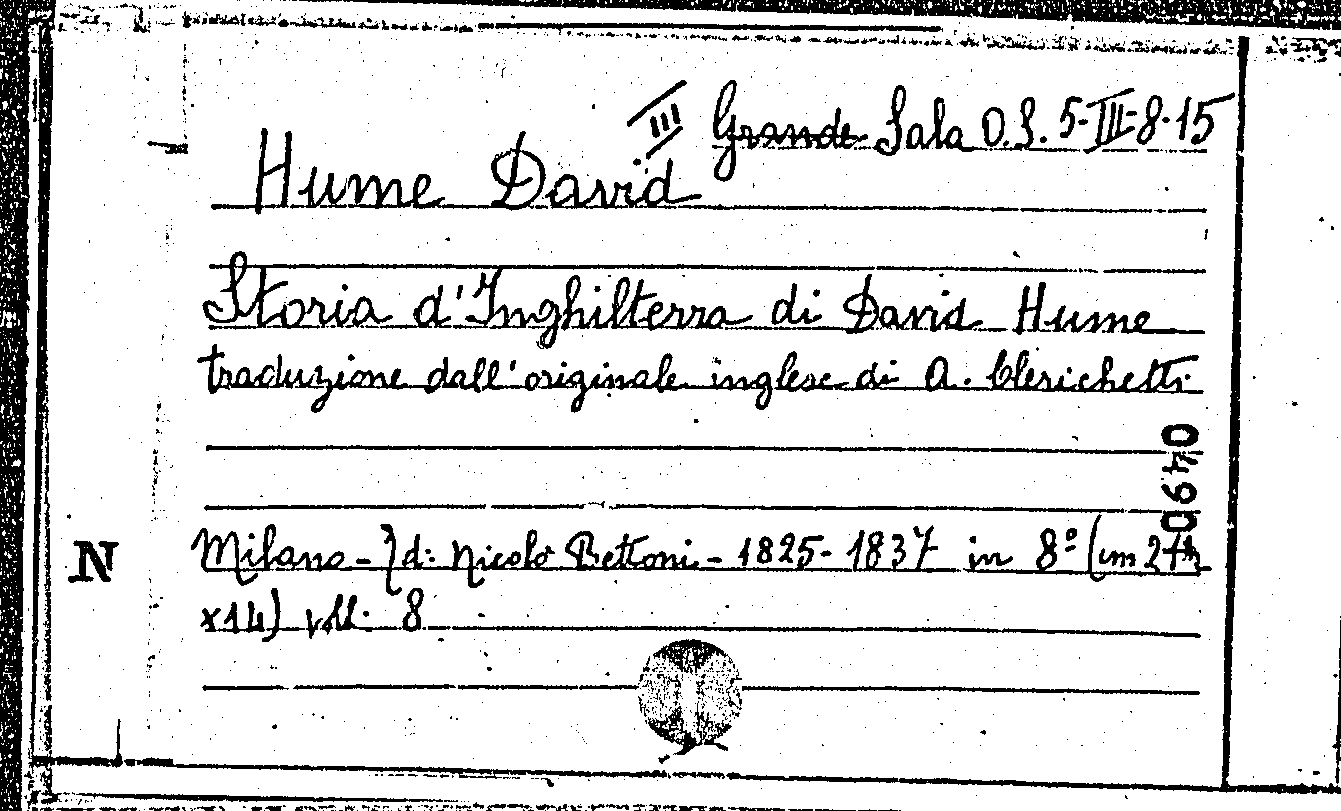 III Grande Sala O.S. 5-III-8-15
Hume David
Storia d'Inghilterra di David Hume
traduzione dall'originale inglese di A. Clerichetti
0490
N
Milano - Ed: Nicolò Bettoni - 1825-1837 in 8º (cm
x14) voll. 8